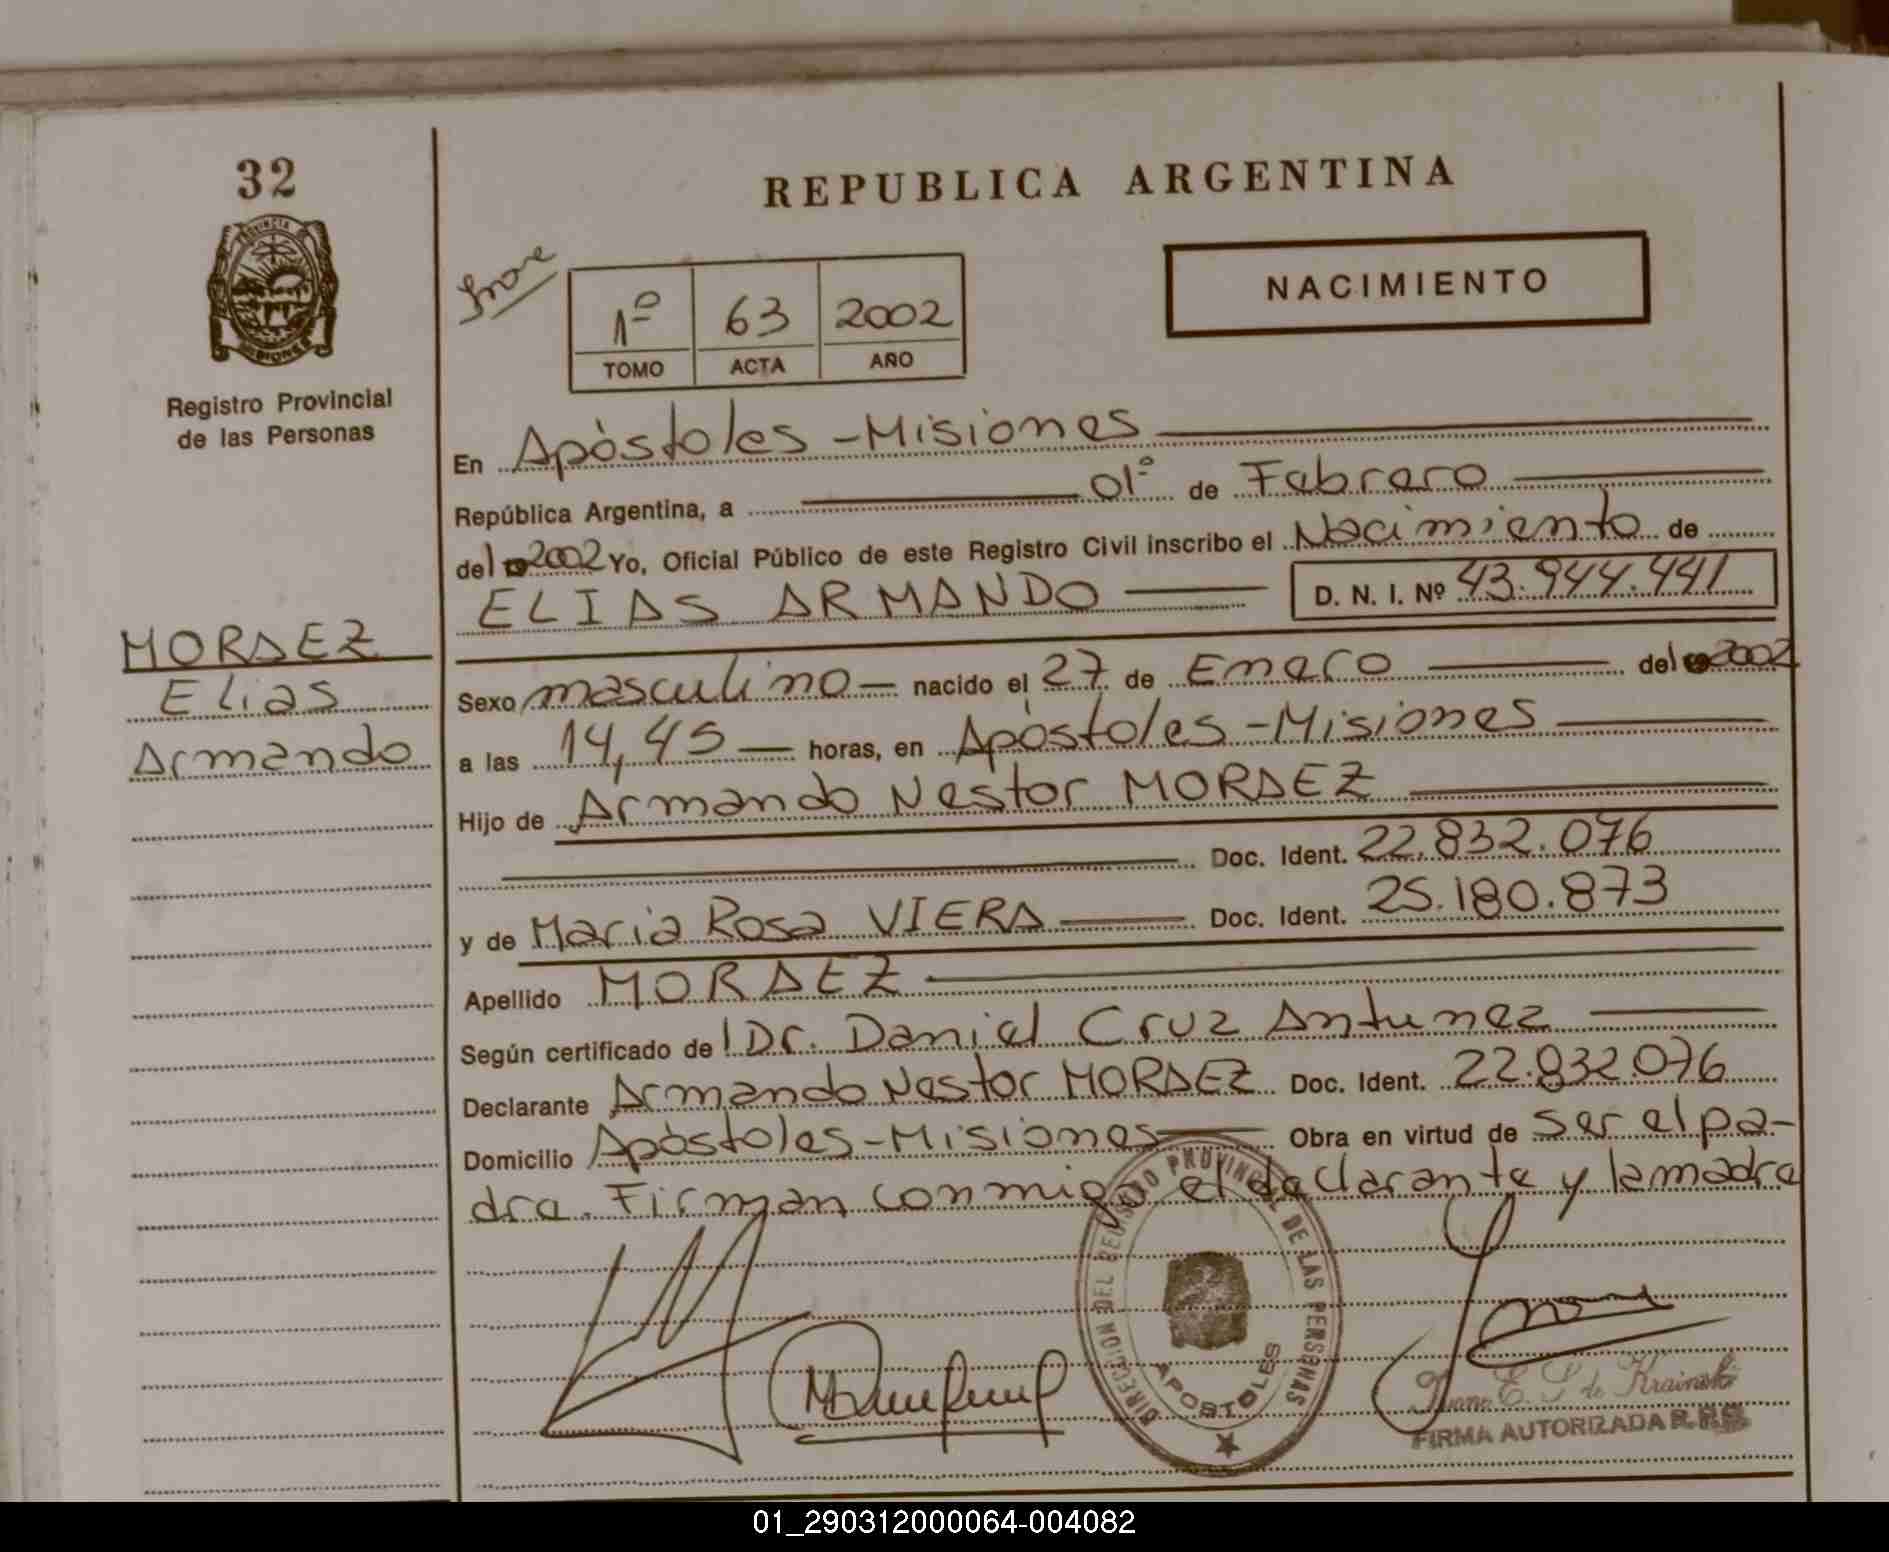 32
REPUBLICA ARGENTINA
NACIMIENTO
1º 63 2002
TOMO ACTA AÑO
Registro Provincial
de las Personas
En Apóstoles - Misiones
República Argentina, a 01º de Febrero
del 2002 Yo, Oficial Público de este Registro Civil inscribo el Nacimiento de
ELIAS ARMANDO D. N. I. Nº 43.944.441
MORAEZ
Elias
Armando
Sexo masculino nacido el 27 de Enero del 2002
a las 14,45 horas, en Apóstoles - Misiones
Hijo de Armando Nestor MORAEZ
Doc. Ident. 22.832.076
y de Maria Rosa VIERA Doc. Ident. 25.180.873
Apellido MORAEZ
Según certificado de Dr. Daniel Cruz Antunez
Declarante Armando Nestor MORAEZ Doc. Ident. 22.832.076
Domicilio Apóstoles - Misiones Obra en virtud de ser el pa-
dre. Firman conmigo el declarante y la madre
DIRECCION DEL REGISTRO PROVINCIAL DE LAS PERSONAS
APOSTOLES
FIRMA AUTORIZADA
01_290312000064-004082